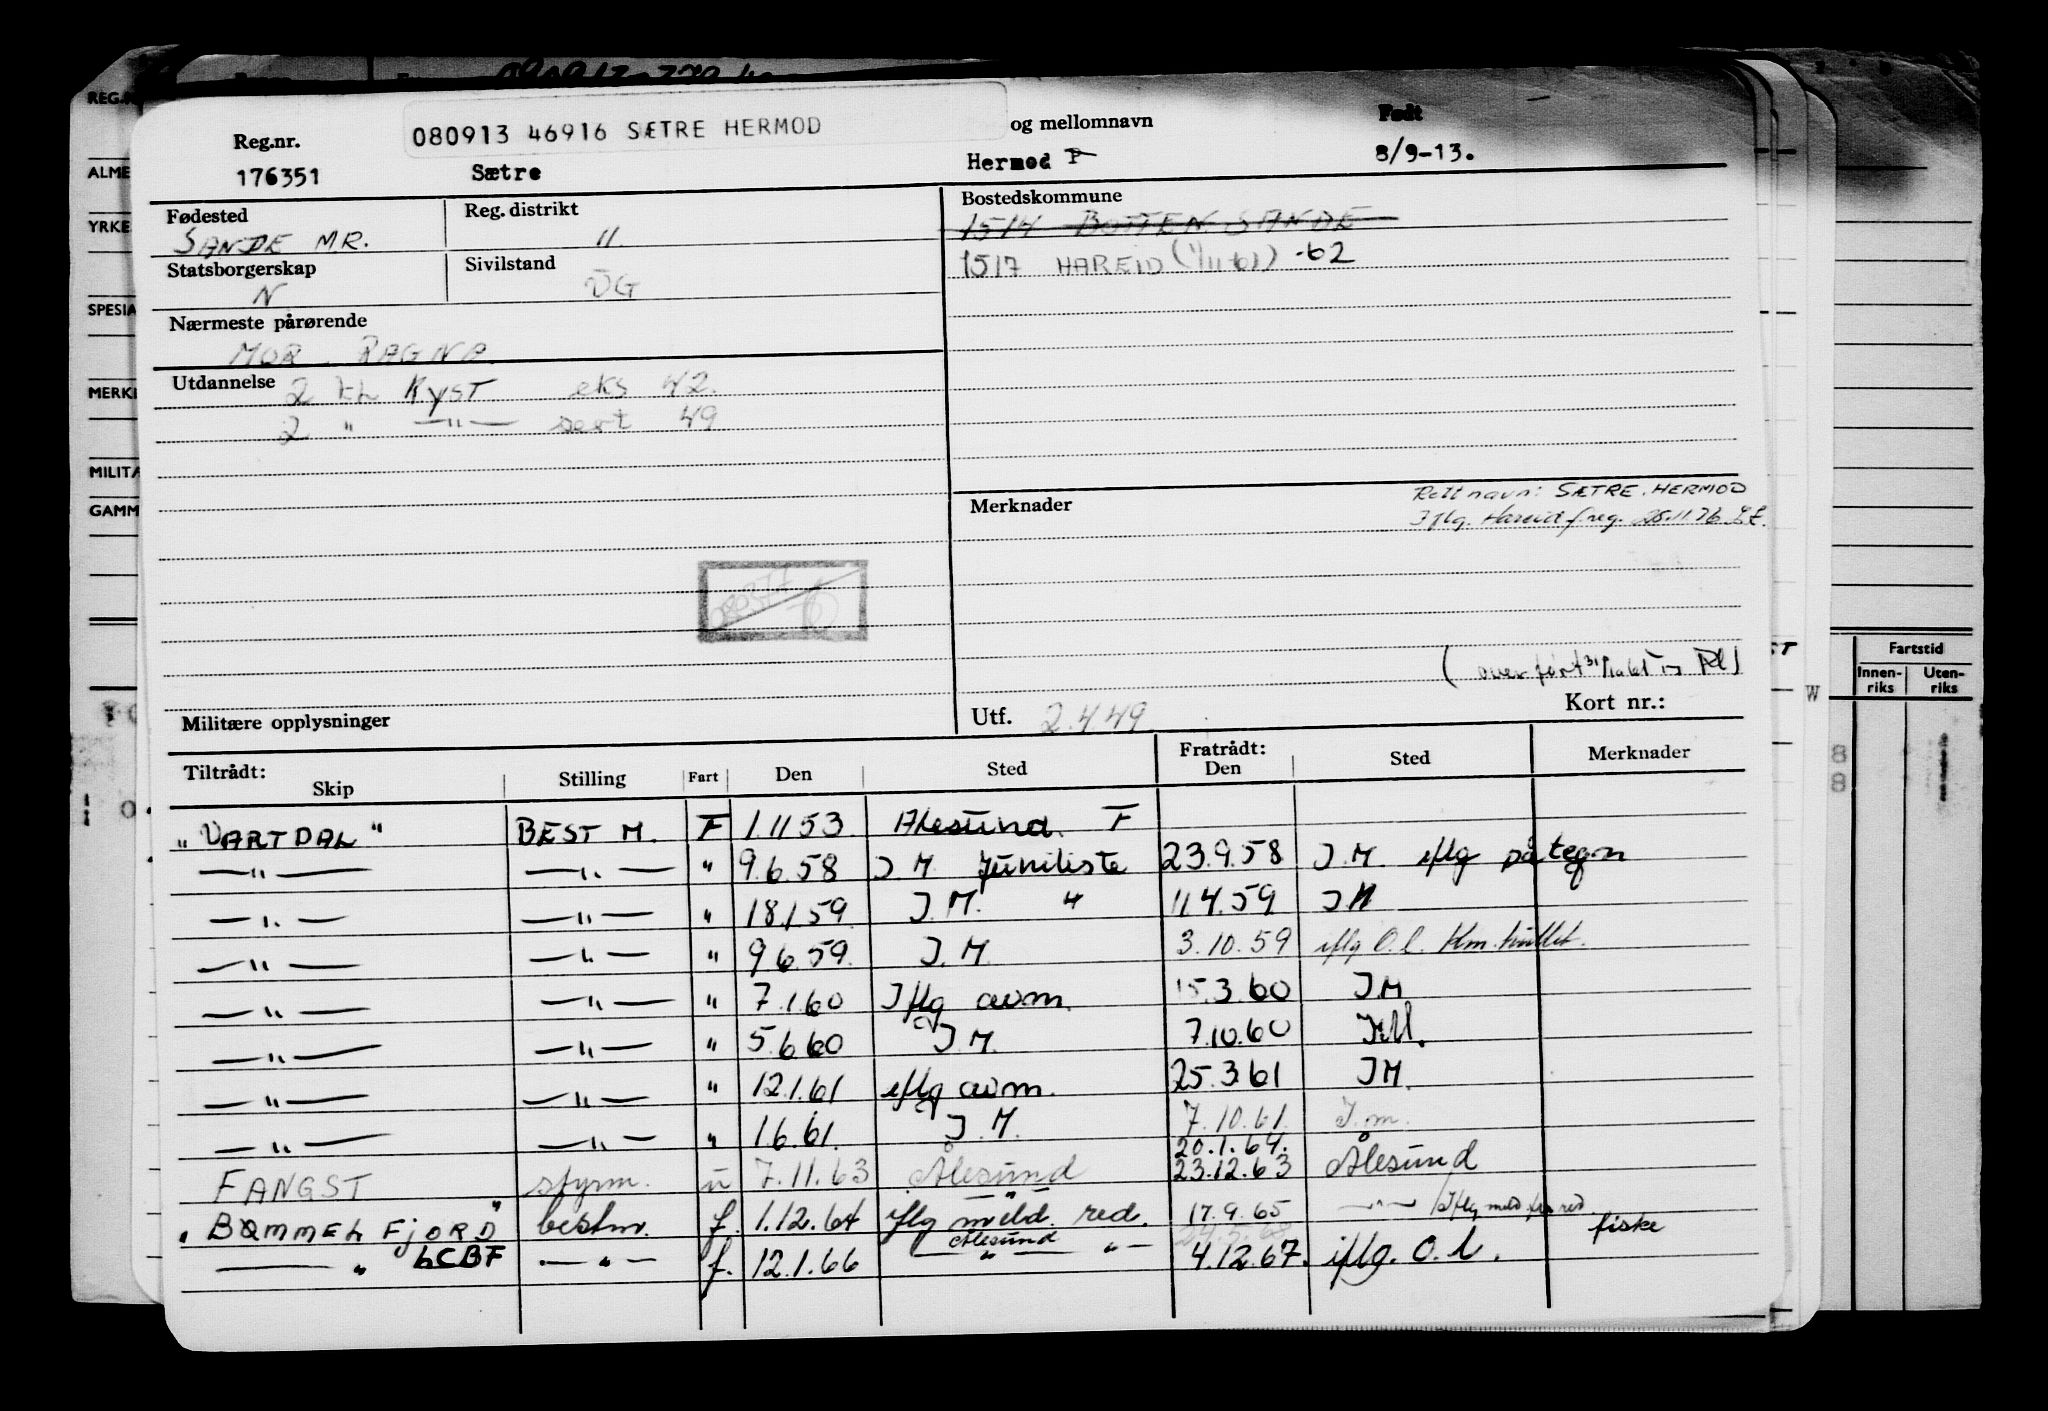 080913 46916 SÆTRE HERMOD
Reg.nr. og mellomnavn Født
176351 Sætre Hermod P 8/9-13.
Fødested Reg. distrikt Bostedskommune
SANDE MR. 11 1514 BOTTEN SANDE
Statsborgerskap Sivilstand 1517 HAREID (1/11-61) -62
N UG
Nærmeste pårørende
MOR. RAGNA
Utdannelse 2 kl KYST eks 42.
2 " —"— sert 49
Merknader Rett navn: SÆTRE, HERMOD
Iflg. Hareid f.reg. 25.11.76
Militære opplysninger Utf. 2.4.49 Kort nr.:
Tiltrådt: Fratrådt:
Skip Stilling Fart Den Sted Den Sted Merknader
"VARTDAL" BEST M. F 1.11 53. Ålesund. F
—"— —"— " 9.6.58 I.M. Juniliste 23.9.58 I.M. iflg påtegn
—"— —"— " 18.1.59. I.M. " 11.4.59 IM
—"— —"— " 9.6.59. I.M. 3.10.59 iflg O.l.
—"— —"— " 7.1.60 Iflg avm. 15.3.60 I.M
—"— —"— " 5.6.60 I.M. 7.10.60 I.M.
—"— —"— " 12.1.61 iflg avm. 25.3.61 IM.
—"— —"— " 1.6.61. I.M. 7.10.61. I.m.
20.1.64.
FANGST styrm. u 7.11.63 Ålesund 23.12.63 Ålesund
"BØMMELFJORD" bestm. f. 1.12.64 iflg meld. red. 17.9.65 —"— Iflg meld fra red.
Ålesund fiske
—"— LCBF —"— f. 12.1.66 —"— "— 4.12.67. iflg. O.l.
REG.N
ALME
YRKE
SPESIA
MERKI
MILITÆ
GAMM
Fartstid
Innenriks Utenriks
W
8
8